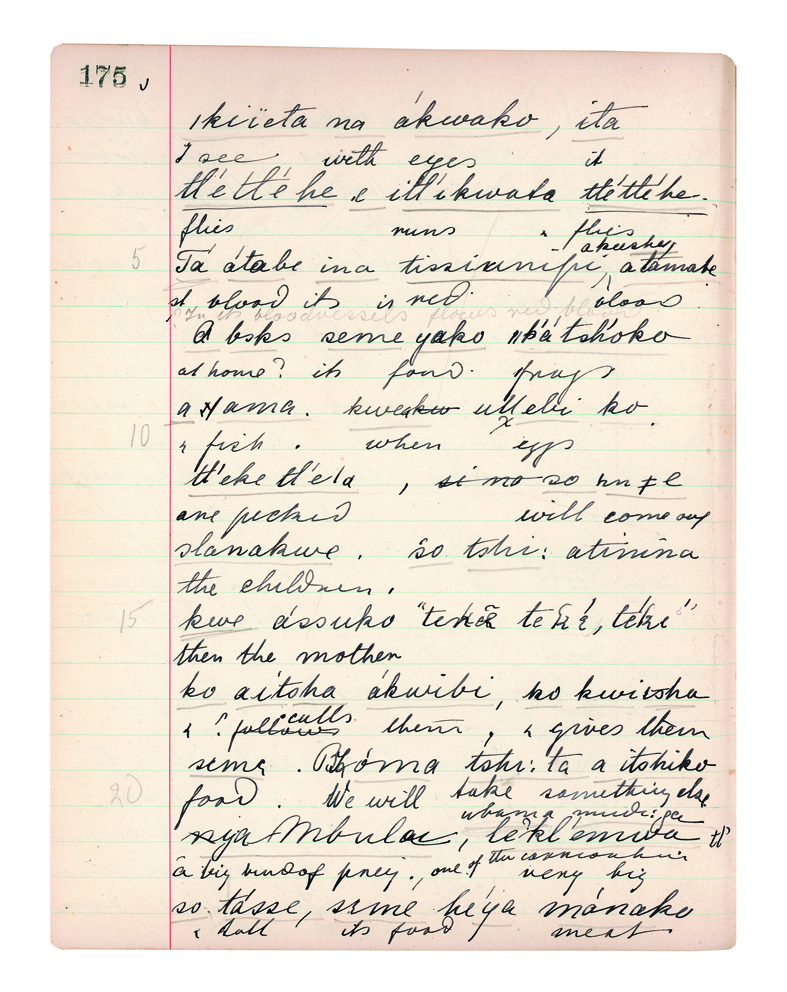 175
kiïeta na ákwako, ita
I see with eyes it
tl'étl'éhe e itl'ikwata tl'étl'éhe.
flies runs flies
akushey
5 Tá átabe ina tissixanifi, atamabe
blood its is red. blood
? In its bloodvessels flows red blood
á bsks seme yako ǁbátshoko
at home? its food. frogs
a xama. kweakw ullebi ko
10 & fish. when eggs
tl'eke tl'e'a, si na so
are pecked will come out
slanakwe. so tshi: atinina
the children.
15 kwe ássuko "
then the mother
ko aitsha ákwibi, ko kwiisha
calls
& ? follows them, & gives them
seme. Kóma tshi: ta a itshiko
20 food. We will take something else
Mbulae, lekl'emwa tl'
a big bird of prey., one of the carrion birds very big
so tásse, seme héya mánako
& tall its food meat